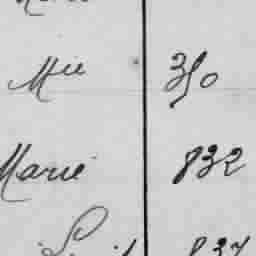 Mie 350
Marie 832
837